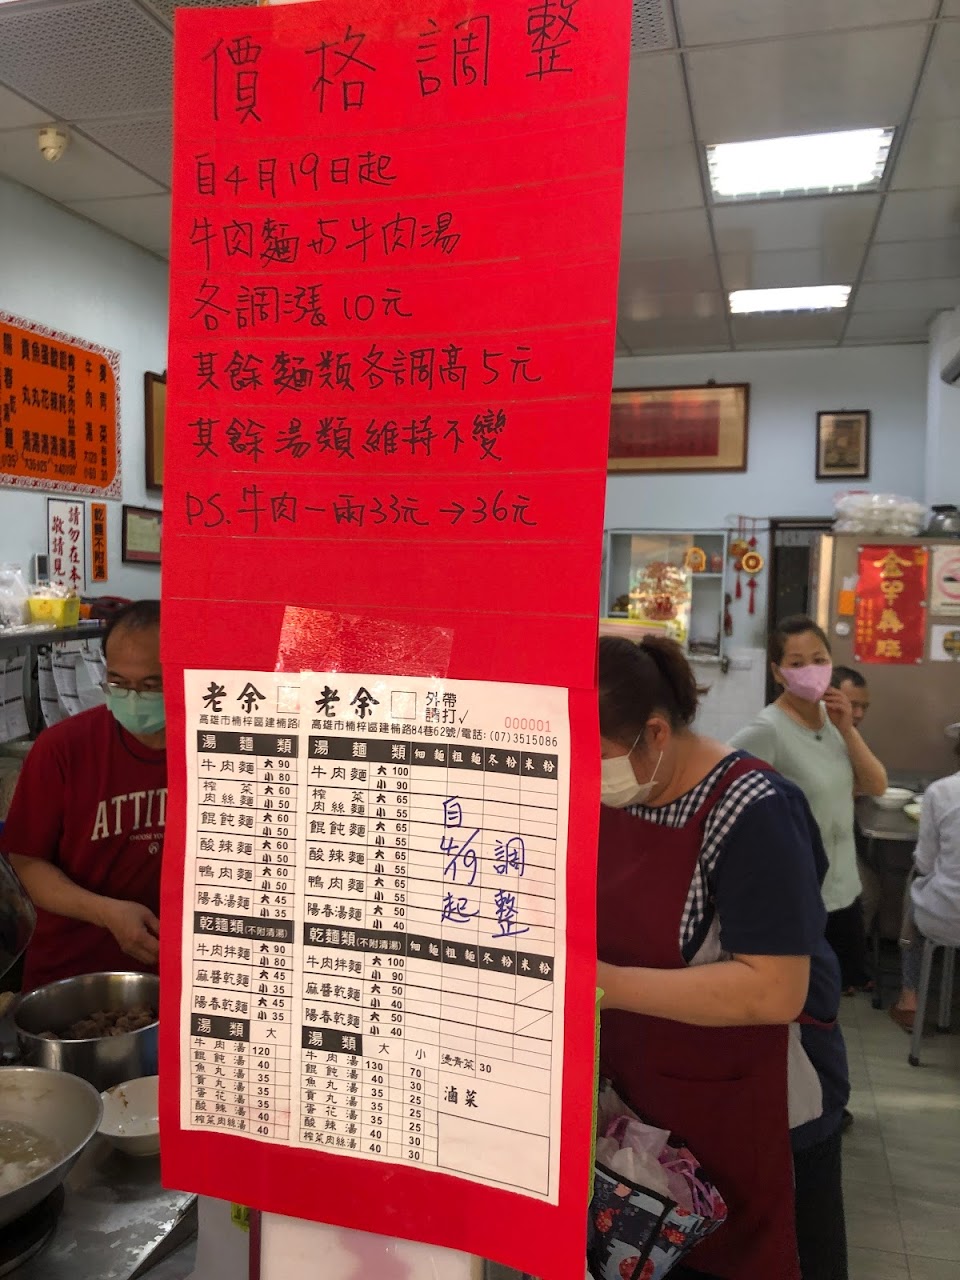 價格調整
自4月19日起
牛肉麵与牛肉湯
各調漲10元
其餘麵類各調高5元
其餘湯類維持不變
PS.牛肉一兩33元→36元
老余
高雄市楠梓區建楠路
湯麵類
牛肉麵 大 90
小 80
榨菜肉絲麵 大 60
小 50
餛飩麵 大 60
小 50
酸辣麵 大 60
小 50
鴨肉麵 大 60
小 50
陽春湯麵 大 45
小 35
乾麵類(不附清湯)
牛肉拌麵 大 90
小 80
麻醬乾麵 大 45
小 35
陽春乾麵 大 45
小 35
湯類 大
牛肉湯 120
餛飩湯 40
魚丸湯 35
貢丸湯 35
蛋花湯 35
酸辣湯 40
榨菜肉絲湯 40
老余 外帶請打✓
000001
高雄市楠梓區建楠路84巷62號/電話:(07)3515086
湯麵類 細麵 粗麵 冬粉 米粉
牛肉麵 大 100
小 90
榨菜肉絲麵 大 65
小 55
餛飩麵 大 65
小 55
酸辣麵 大 65
小 55
鴨肉麵 大 65
小 55
陽春湯麵 大 50
小 40
自4/19起調整
乾麵類(不附清湯) 細麵 粗麵 冬粉 米粉
牛肉拌麵 大 100
小 90
麻醬乾麵 大 50
小 40
陽春乾麵 大 50
小 40
湯類 大 小
牛肉湯 130 70
餛飩湯 40 30
魚丸湯 35 25
貢丸湯 35 25
蛋花湯 35 25
酸辣湯 40 30
榨菜肉絲湯 40 30
燙青菜 30
滷菜
乾麵不附湯
請勿在本
敬請見
ATTIT